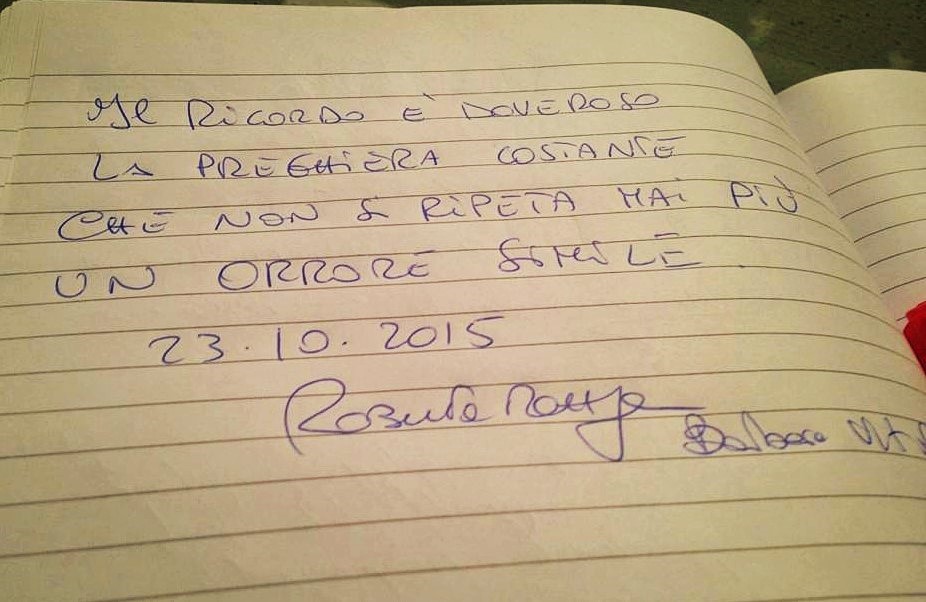 Il RICORDO È DOVEROSO
LA PREGHIERA COSTANTE
CHE NON SI RIPETA MAI PIÙ
UN ORRORE SIMILE
23.10.2015
Barbara